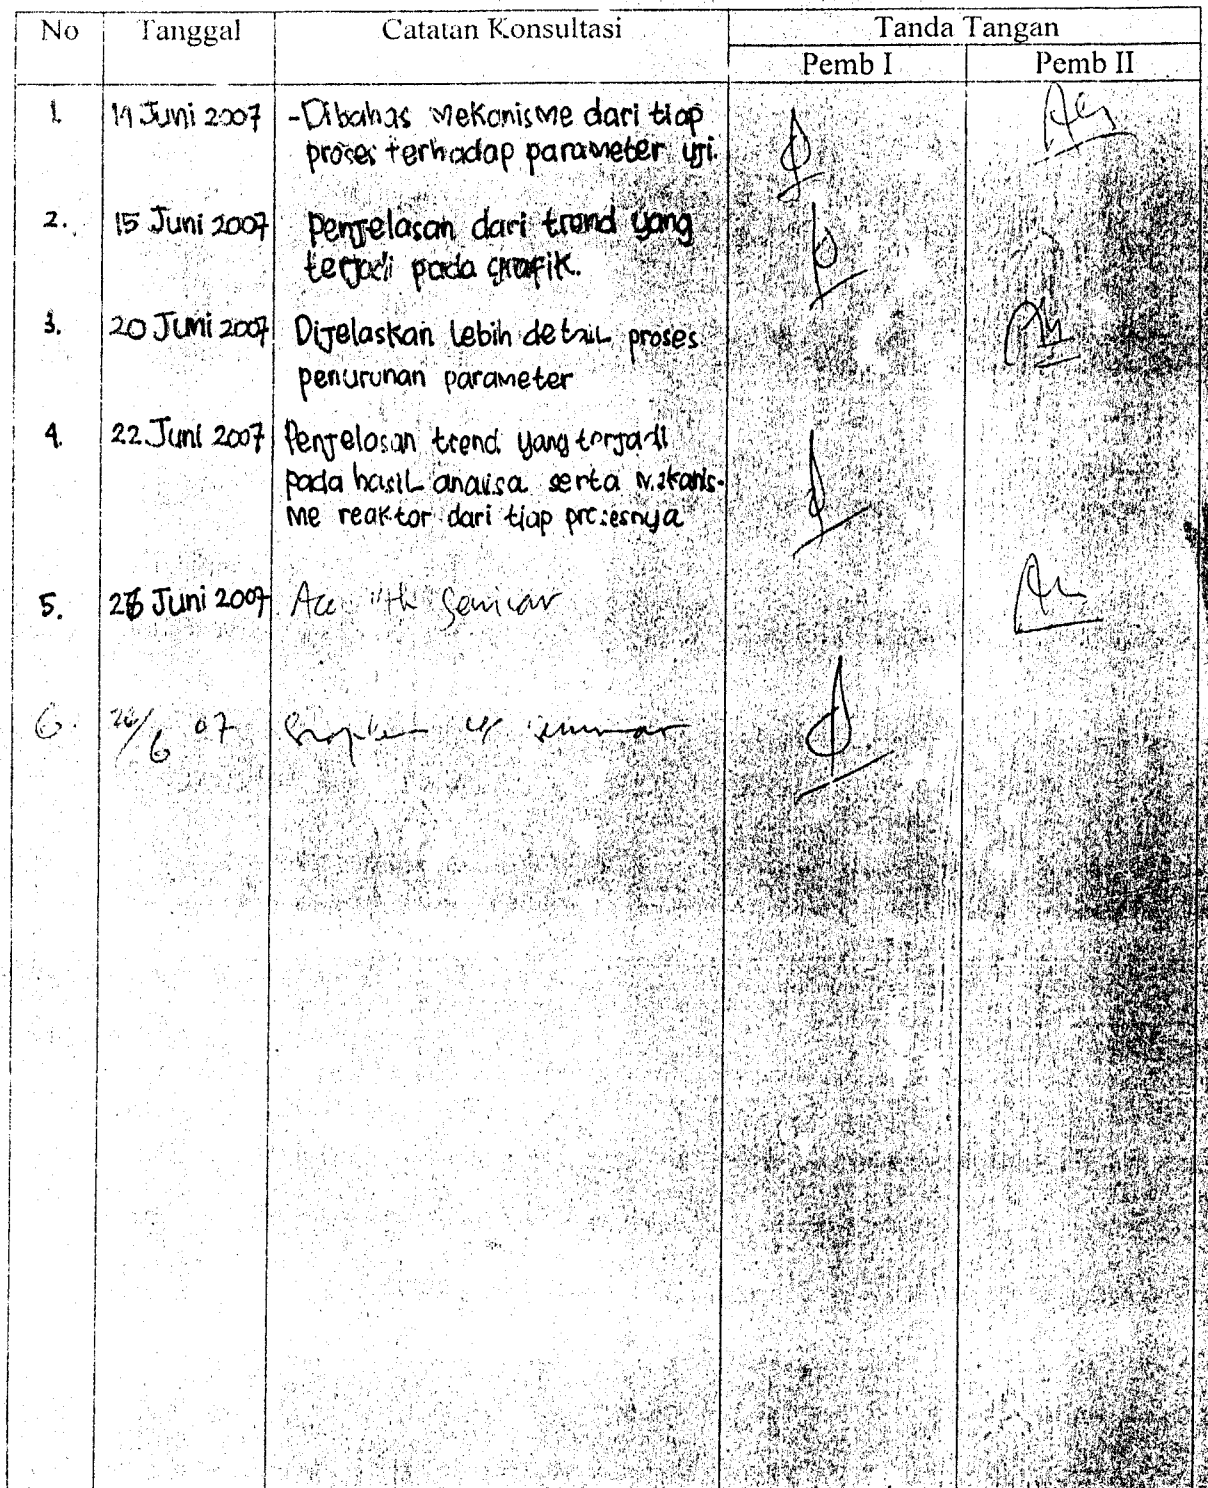 No Tanggal Catatan Konsultasi Tanda Tangan
Pemb I Pemb II
1. 14 Juni 2007 -Dibahas mekanisme dari tiap
proses terhadap parameter uji.
2. 15 Juni 2007 Penjelasan dari trend yang
terjadi pada grafik.
3. 20 Juni 2007 Dijelaskan lebih detail proses
penurunan parameter
4. 22 Juni 2007 Penjelasan trend yang terjadi
pada hasil analisa serta mekanis-
me reaktor dari tiap prosesnya
5. 26 Juni 2007 Acc seminar
6. 26/6 07 seminar